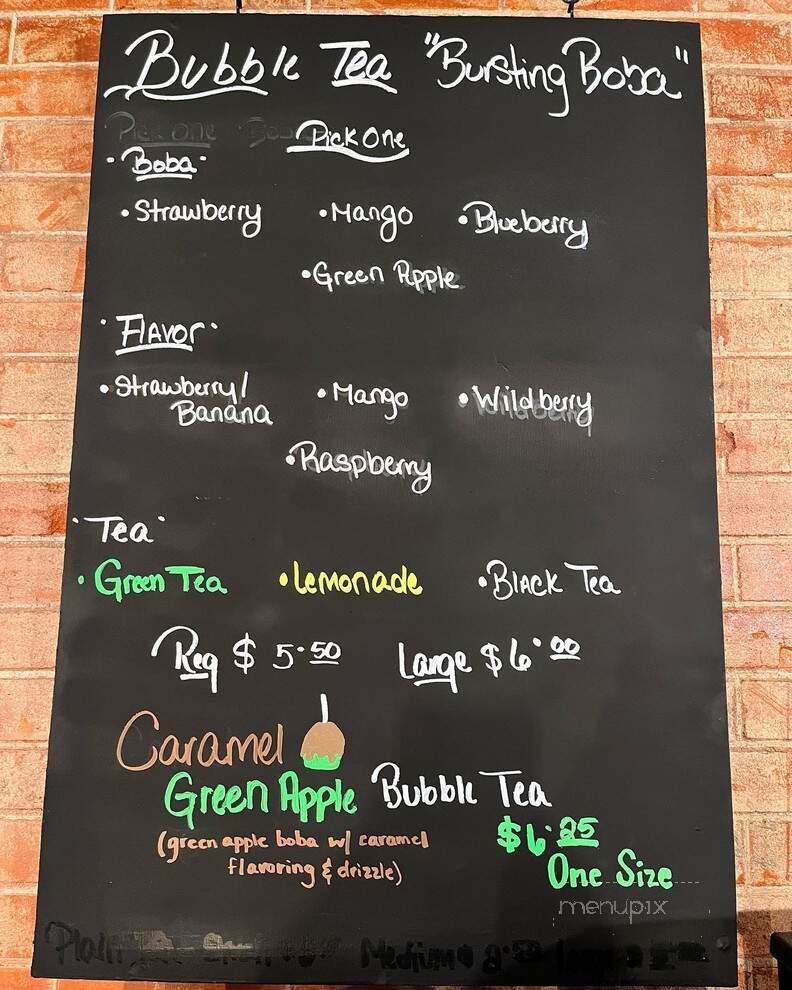 Bubble Tea "Bursting Boba"
Pick One
Pick One
·Boba·
•Strawberry •Mango •Blueberry
•Green Apple
·Flavor·
•Strawberry/ •Mango •Wildberry
Banana
•Raspberry
·Tea·
•Green Tea •Lemonade •Black Tea
Reg $5.50 Large $6.00
Caramel
Green Apple Bubble Tea
(green apple boba w/ caramel
flavoring & drizzle)
$6.25
One Size
menupix
Plain Medium